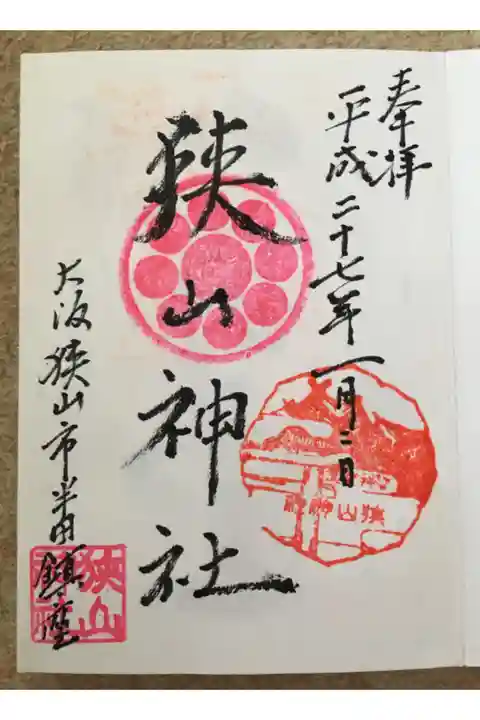 奉拝
平成二十七年一月二日
狭山神社
狭山神社
大阪狭山市半田鎮座
狭山